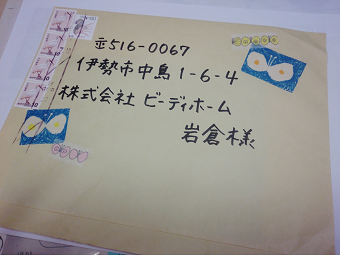 〒516-0067
伊勢市中島1-6-4
株式会社 ビーディホーム
岩倉様